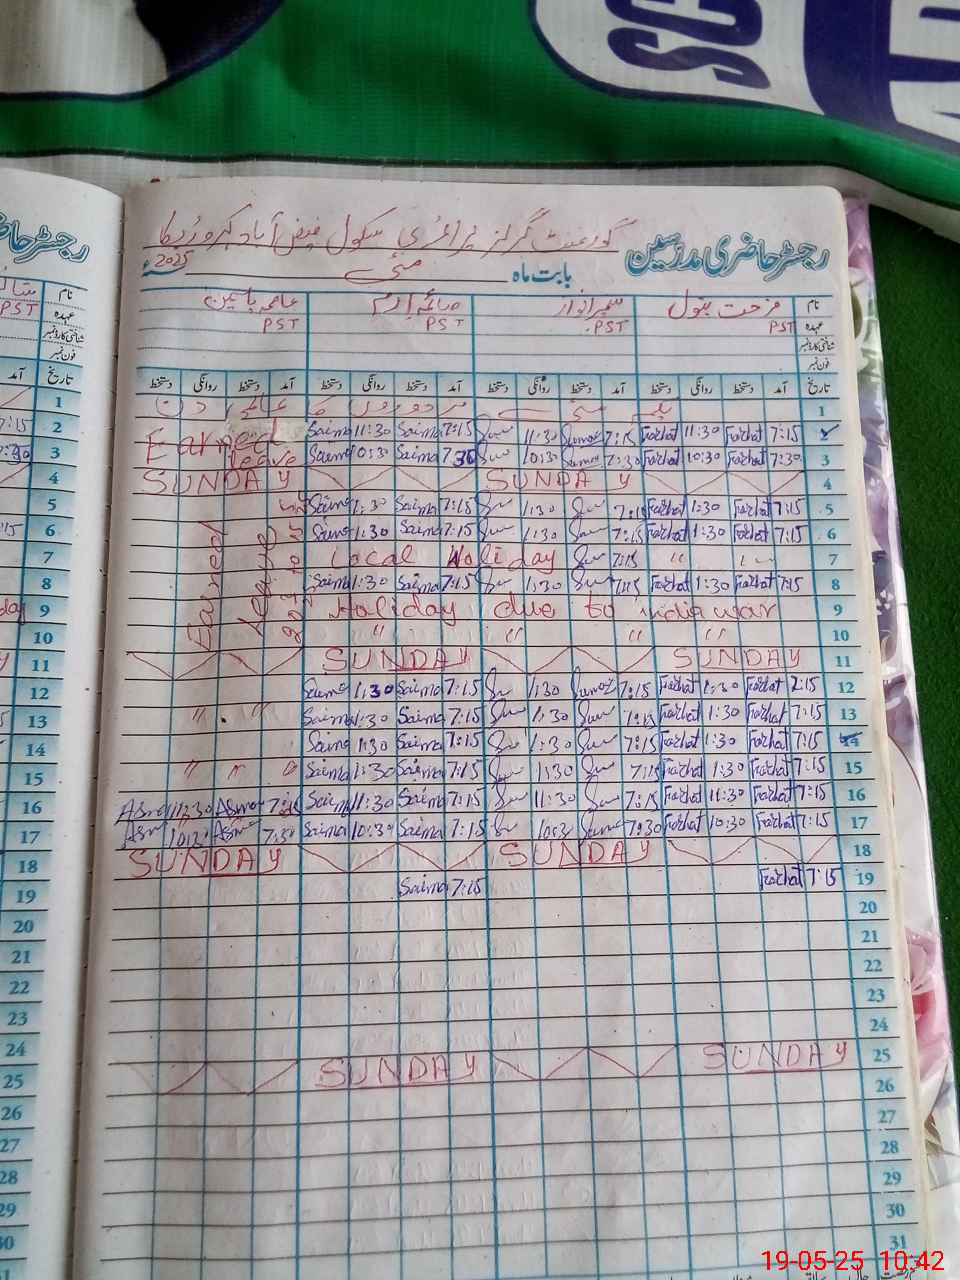 SC
رجسٹر حاضری مدرسین
گورنمنٹ گرلز پرائمری سکول فیض آباد کہروڑ پکا
بابت ماہ مئی 2025ء
نام فرحت بتول سمیرا نواز صائمہ ارم عاصمہ یاسمین
عہدہ PST PST PST PST
شناختی کارڈ نمبر
فون نمبر
تاریخ آمد دستخط روانگی دستخط آمد دستخط روانگی دستخط آمد دستخط روانگی دستخط آمد دستخط روانگی دستخط
1 یکم مئی مزدوروں کا عالمی دن
2 Earned Saima 11:30 Saima 7:15 11:30 7:15 Farhat 11:30 Farhat 7:15 2
3 leave Saima 10:30 Saima 7:30 10:30 7:30 Farhat 10:30 Farhat 7:30 3
4 SUNDAY SUNDAY 4
5 Saima 1:30 Saima 7:15 1:30 7:15 Farhat 1:30 Farhat 7:15 5
6 Saima 1:30 Saima 7:15 1:30 7:15 Farhat 1:30 Farhat 7:15 6
7 Local Holiday 7:15 " 7
8 Saima 1:30 Saima 7:15 1:30 7:15 Farhat 1:30 Farhat 7:15 8
Earned leave
9 Holiday due to india war 9
10 " " " " 10
11 SUNDAY SUNDAY 11
12 Saima 1:30 Saima 7:15 1:30 7:15 Farhat 1:30 Farhat 7:15 12
13 " " Saima 1:30 Saima 7:15 1:30 7:15 Farhat 1:30 Farhat 7:15 13
14 Saima 1:30 Saima 7:15 1:30 7:15 Farhat 1:30 Farhat 7:15 14
15 " " " Saima 1:30 Saima 7:15 1:30 7:15 Farhat 1:30 Farhat 7:15 15
16 Asma 11:30 Asma 7:15 Saima 11:30 Saima 7:15 11:30 7:15 Farhat 11:30 Farhat 7:15 16
17 Asma Asma 7:30 Saima 10:30 Saima 7:15 7:30 Farhat 10:30 Farhat 7:15 17
18 SUNDAY SUNDAY 18
19 Saima 7:15 Farhat 7:15 19
20 20
21 21
22 22
23 23
24 24
25 SUNDAY SUNDAY 25
26 26
27 27
28 28
29 29
30 30
31 31
19-05-25 10:42